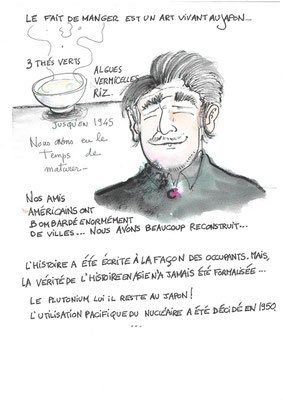 LE FAIT DE MANGER EST UN ART VIVANT AU JAPON...
3 THÉS VERTS
ALGUES
VERMICELLES
RIZ.
JUSQU'EN 1945
Nous avons eu le
Temps de
maturer...
NOS AMIS
AMÉRICAINS ONT
BOMBARDÉ ENORMÉMENT
DE VILLES... NOUS AVONS BEAUCOUP RECONSTRUIT...
L'HISTOIRE A ÉTÉ ÉCRITE À LA FAÇON DES OCCUPANTS. MAIS,
LA VÉRITÉ DE L'HISTOIRE EN ASIE N'A JAMAIS ÉTÉ FORMALISÉE...
LE PLUTONIUM LUI IL RESTE AU JAPON!
L'UTILISATION PACIFIQUE DU NUCLÉAIRE A ÉTÉ DÉCIDÉ EN 1950.
...